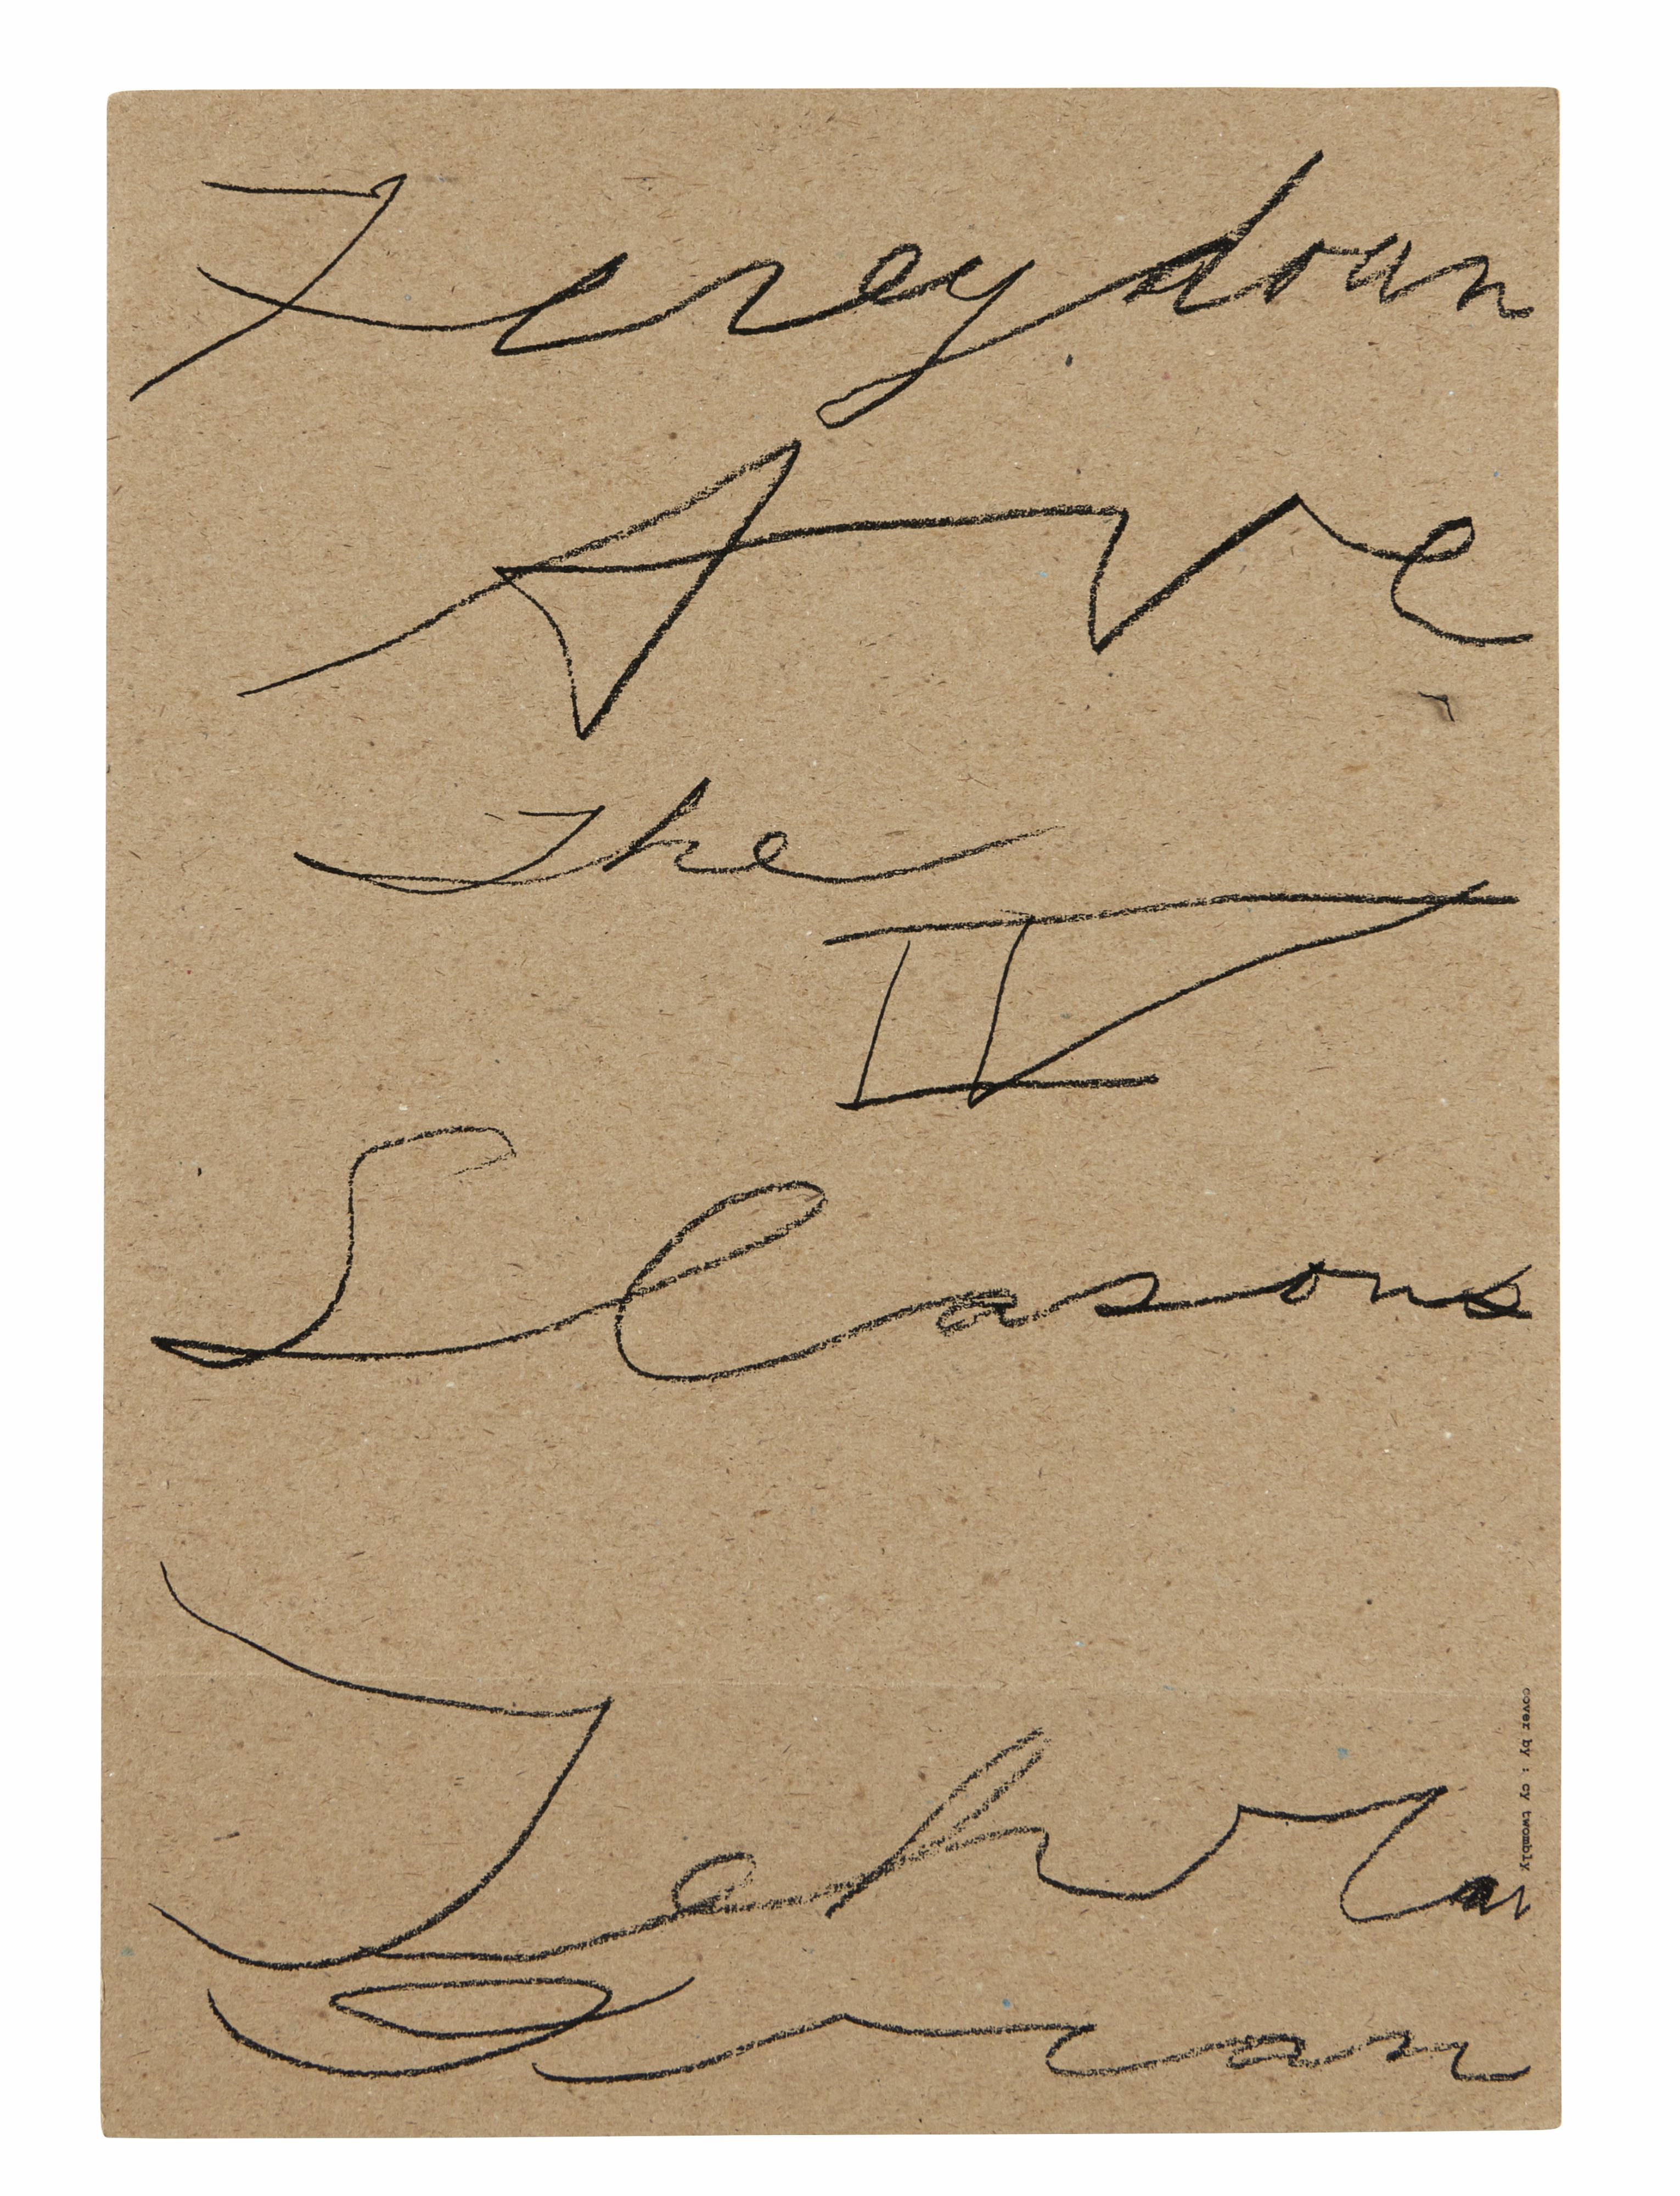 Fereydoun
Ave
The
IV
Seasons
Tehran
Iran
cover by : cy twombly